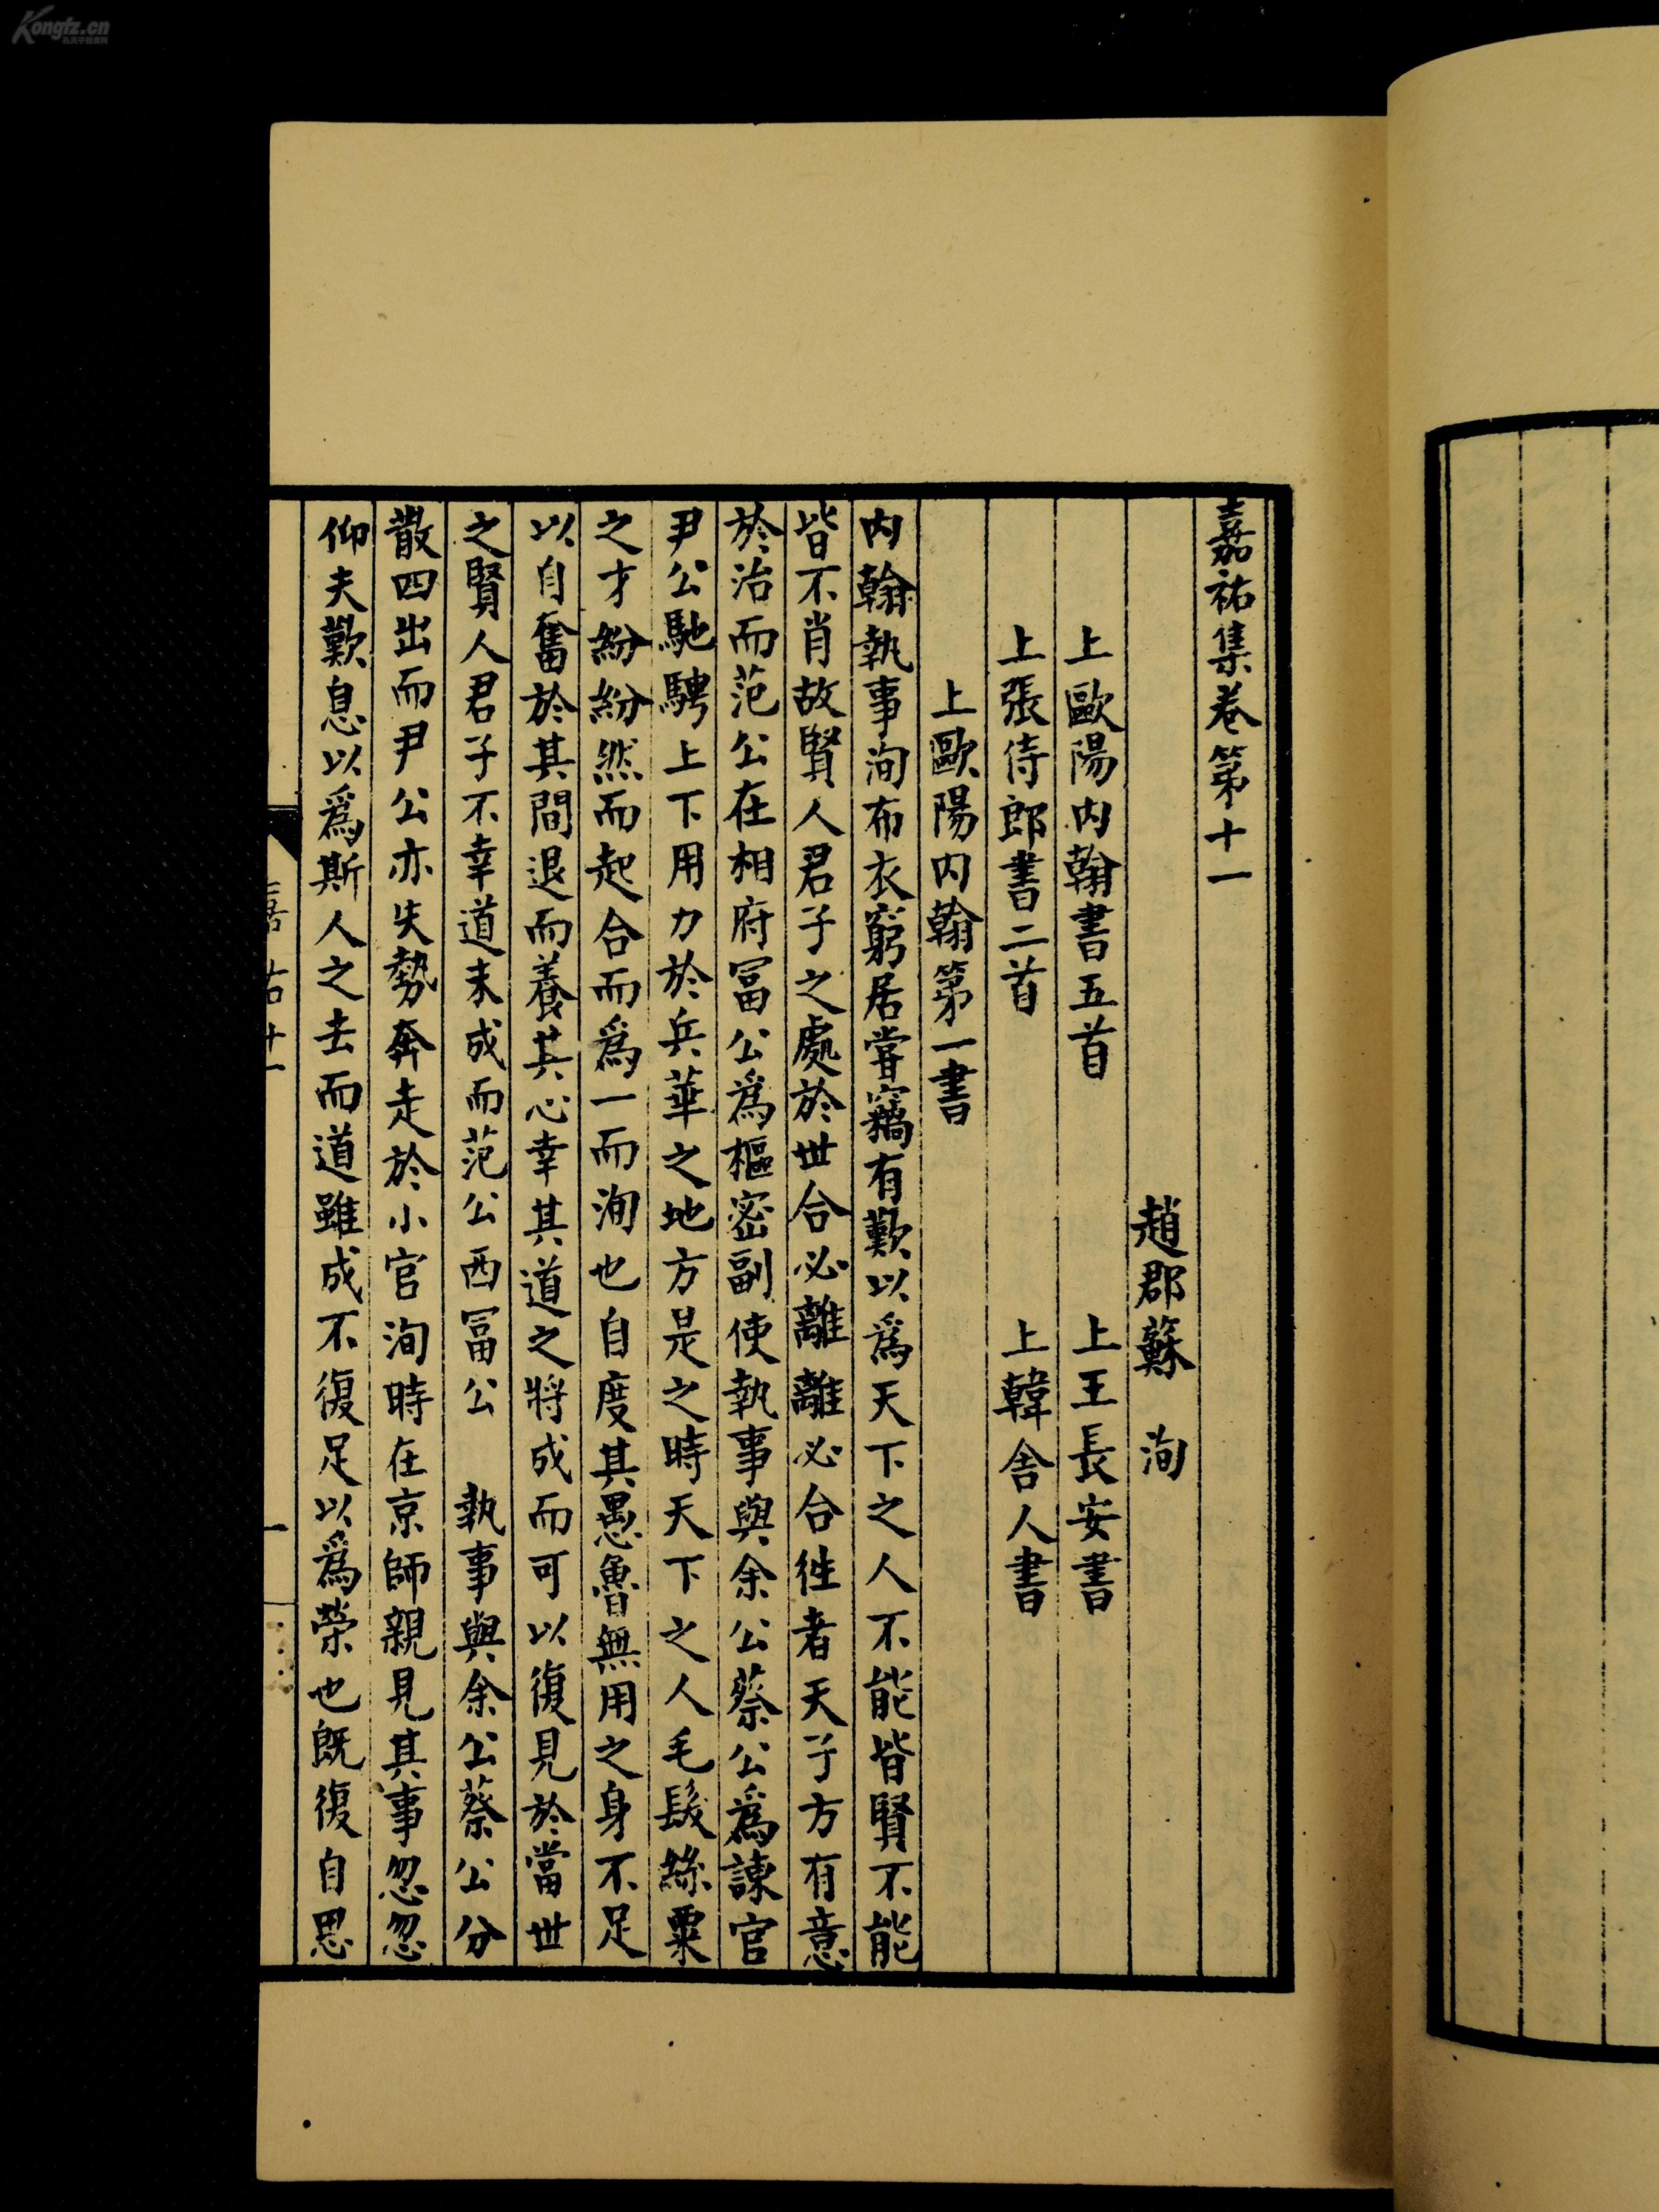 嘉祐集卷第十一
趙郡蘇 洵
上歐陽內翰書五首 上王長安書
上張侍郎書二首 上韓舍人書
上歐陽內翰第一書
內翰執事洵布衣窮居嘗竊有歎以爲天下之人不能皆賢不能
皆不肖故賢人君子之處於世合必離離必合徃者天子方有意
於治而范公在相府冨公爲樞密副使執事與余公蔡公爲諫官
尹公馳騁上下用力於兵革之地方是之時天下之人毛髮絲粟
之才紛紛然而起合而爲一而洵也自度其愚魯無用之身不足
以自奮於其間退而養其心幸其道之將成而可以復見於當世
之賢人君子不幸道未成而范公西冨公 執事與余公蔡公分
散四出而尹公亦失勢奔走於小官洵時在京師親見其事忽忽
仰天歎息以爲斯人之去而道雖成不復足以爲榮也旣復自思
嘉祐十一
一
Kongfz.cn
孔夫子旧书网